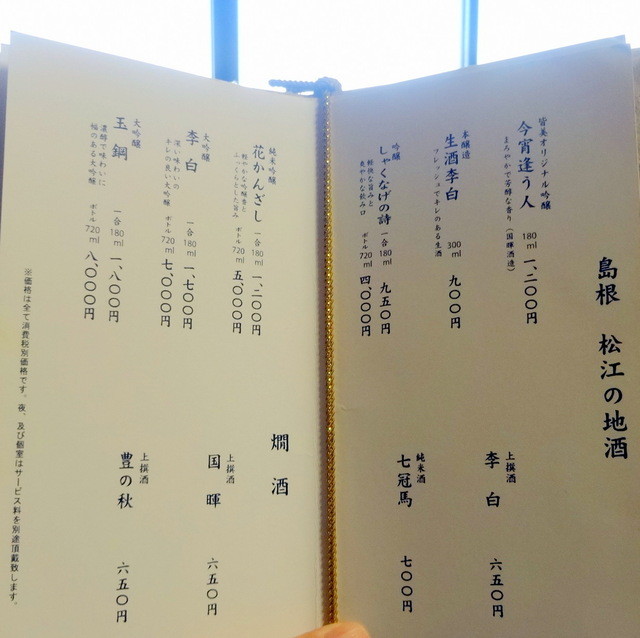 島根 松江の地酒
皆美オリジナル吟醸
今宵逢う人
まろやかで芳醇な香り（國暉酒造）
180ml 一、二〇〇円
本醸造
生酒李白
フレッシュでキレのある生酒
300ml 九〇〇円
吟醸
しゃくなげの詩
軽快な旨みと
爽やかな飲み口
一合 180ml 九五〇円
ボトル 720ml 四、〇〇〇円
上撰酒
李白 六五〇円
純米酒
七冠馬 七〇〇円
純米吟醸
花かんざし
軽やかな吟醸香と
ふっくらとした旨み
一合 180ml 一、二〇〇円
ボトル 720ml 五、〇〇〇円
大吟醸
李白
深い味わいの
キレの良い大吟醸
一合 180ml 一、七〇〇円
ボトル 720ml 七、〇〇〇円
大吟醸
玉鋼
濃醇で味わいに
幅のある大吟醸
一合 180ml 一、八〇〇円
ボトル 720ml 八、〇〇〇円
燗酒
上撰酒
国暉 六五〇円
上撰酒
豊の秋 六五〇円
※価格は全て消費税別価格です。夜、及び個室はサービス料を別途頂戴致します。